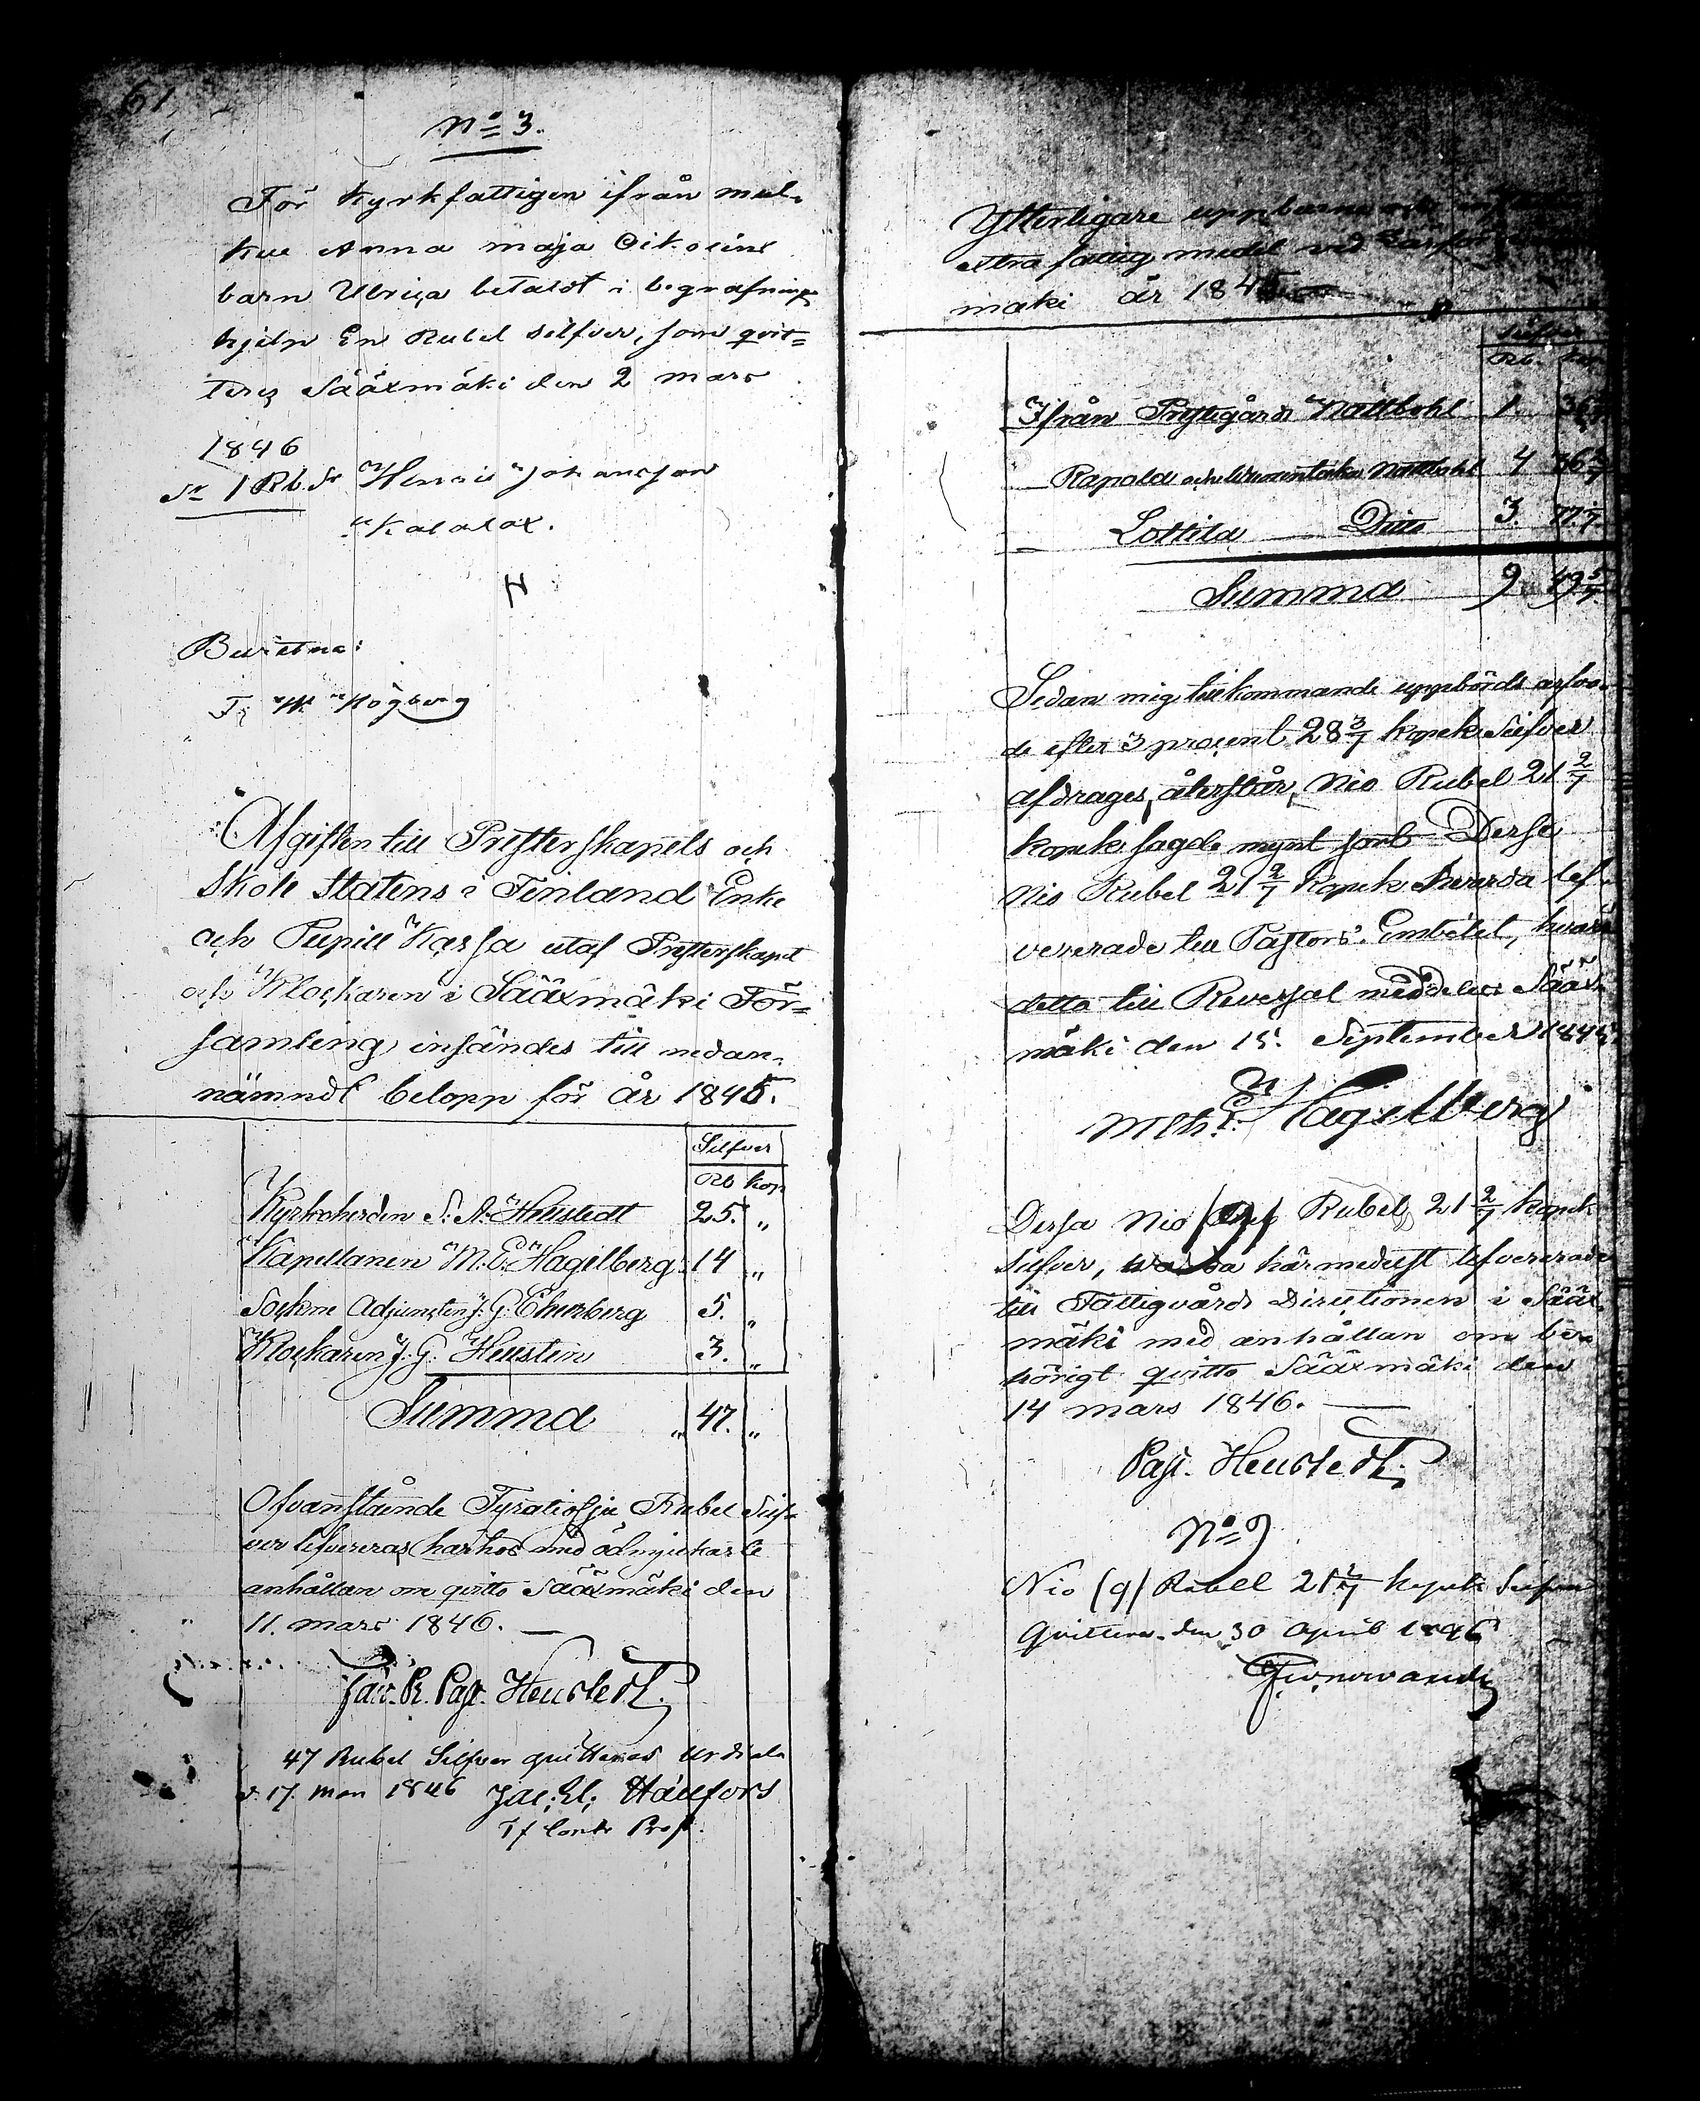 61
No 3.
För Kyrkfattigen ifrån mul-
kue Anna maja
barn Ulrica betaldt i begrafnings
hjelp En Rubel silfver, som qvit-
teras Sääxmäki den 2 mars
1846
Sr 1 Rb. Sr Henric Johansson
Kalalax.
H
Bevittna:
Högberg
Afgiften till Presterskapets och
Skole Statens i Finland Enke
och Pupill Kassa utaf Presterskapet
och Klockaren i Sääxmäki För=
samling, insändes till nedan-
nämndt belopp för år 1845.
Silfver
Rb kop
Kyrkoherden S. A. Heustedt 25. "
Kapellanen M. E. Hagelberg 14 "
Sockne Adjuncten J. G. Ehrnberg 5. "
Klockaren J. G. Heusten 3. "
Summa " 47. "
Ofvanstående Fyratiosju Rubel Silf-
ver lefvereras härhos med ödmjukaste
anhållan om qvitto Sääxmäki den
11. mars 1846.
Past. Heustedt.
47 Rubel Silfver quitteras Urdiala
d. 17. Mars 1846 Jac: El: Hällfors
Tf Contr Prost.
Ytterligare uppburne
extra fattig medel
mäki år 1845
Silfver
Rb. kop
Ifrån Prestegårds Nattbohl 1. 36
Rapola och Nattbohl 4 36
Lottila Ditto 3. 77
Summa 9 49 5/7
Sedan mig tillkommande uppbörds arfvo-
de efter 3 procent 28 3/7 kopek Silfver
afdrages, återstår, Nio Rubel 21 2/7
kopek sagde mynt Dessa
Nio Rubel 21 2/7 kopek lef-
vererade till Pastors Embetet,
detta till Reversal meddelas Sääx-
mäki den 15. September 1845
Hagelberg
Dessa Nio (9) Rubel, 21 2/7 kopek
Silfver, warda härmedelst lefvererade
till Fattigvårds Directionen i Sääx-
mäki med anhållan om be-
hörigt qvitto Sääxmäki den
14 mars 1846.
Past. Heustedt.
No 9
Nio (9) Rubel 21 2/7 kopek Silfver
Quitteras den 30 April 1846